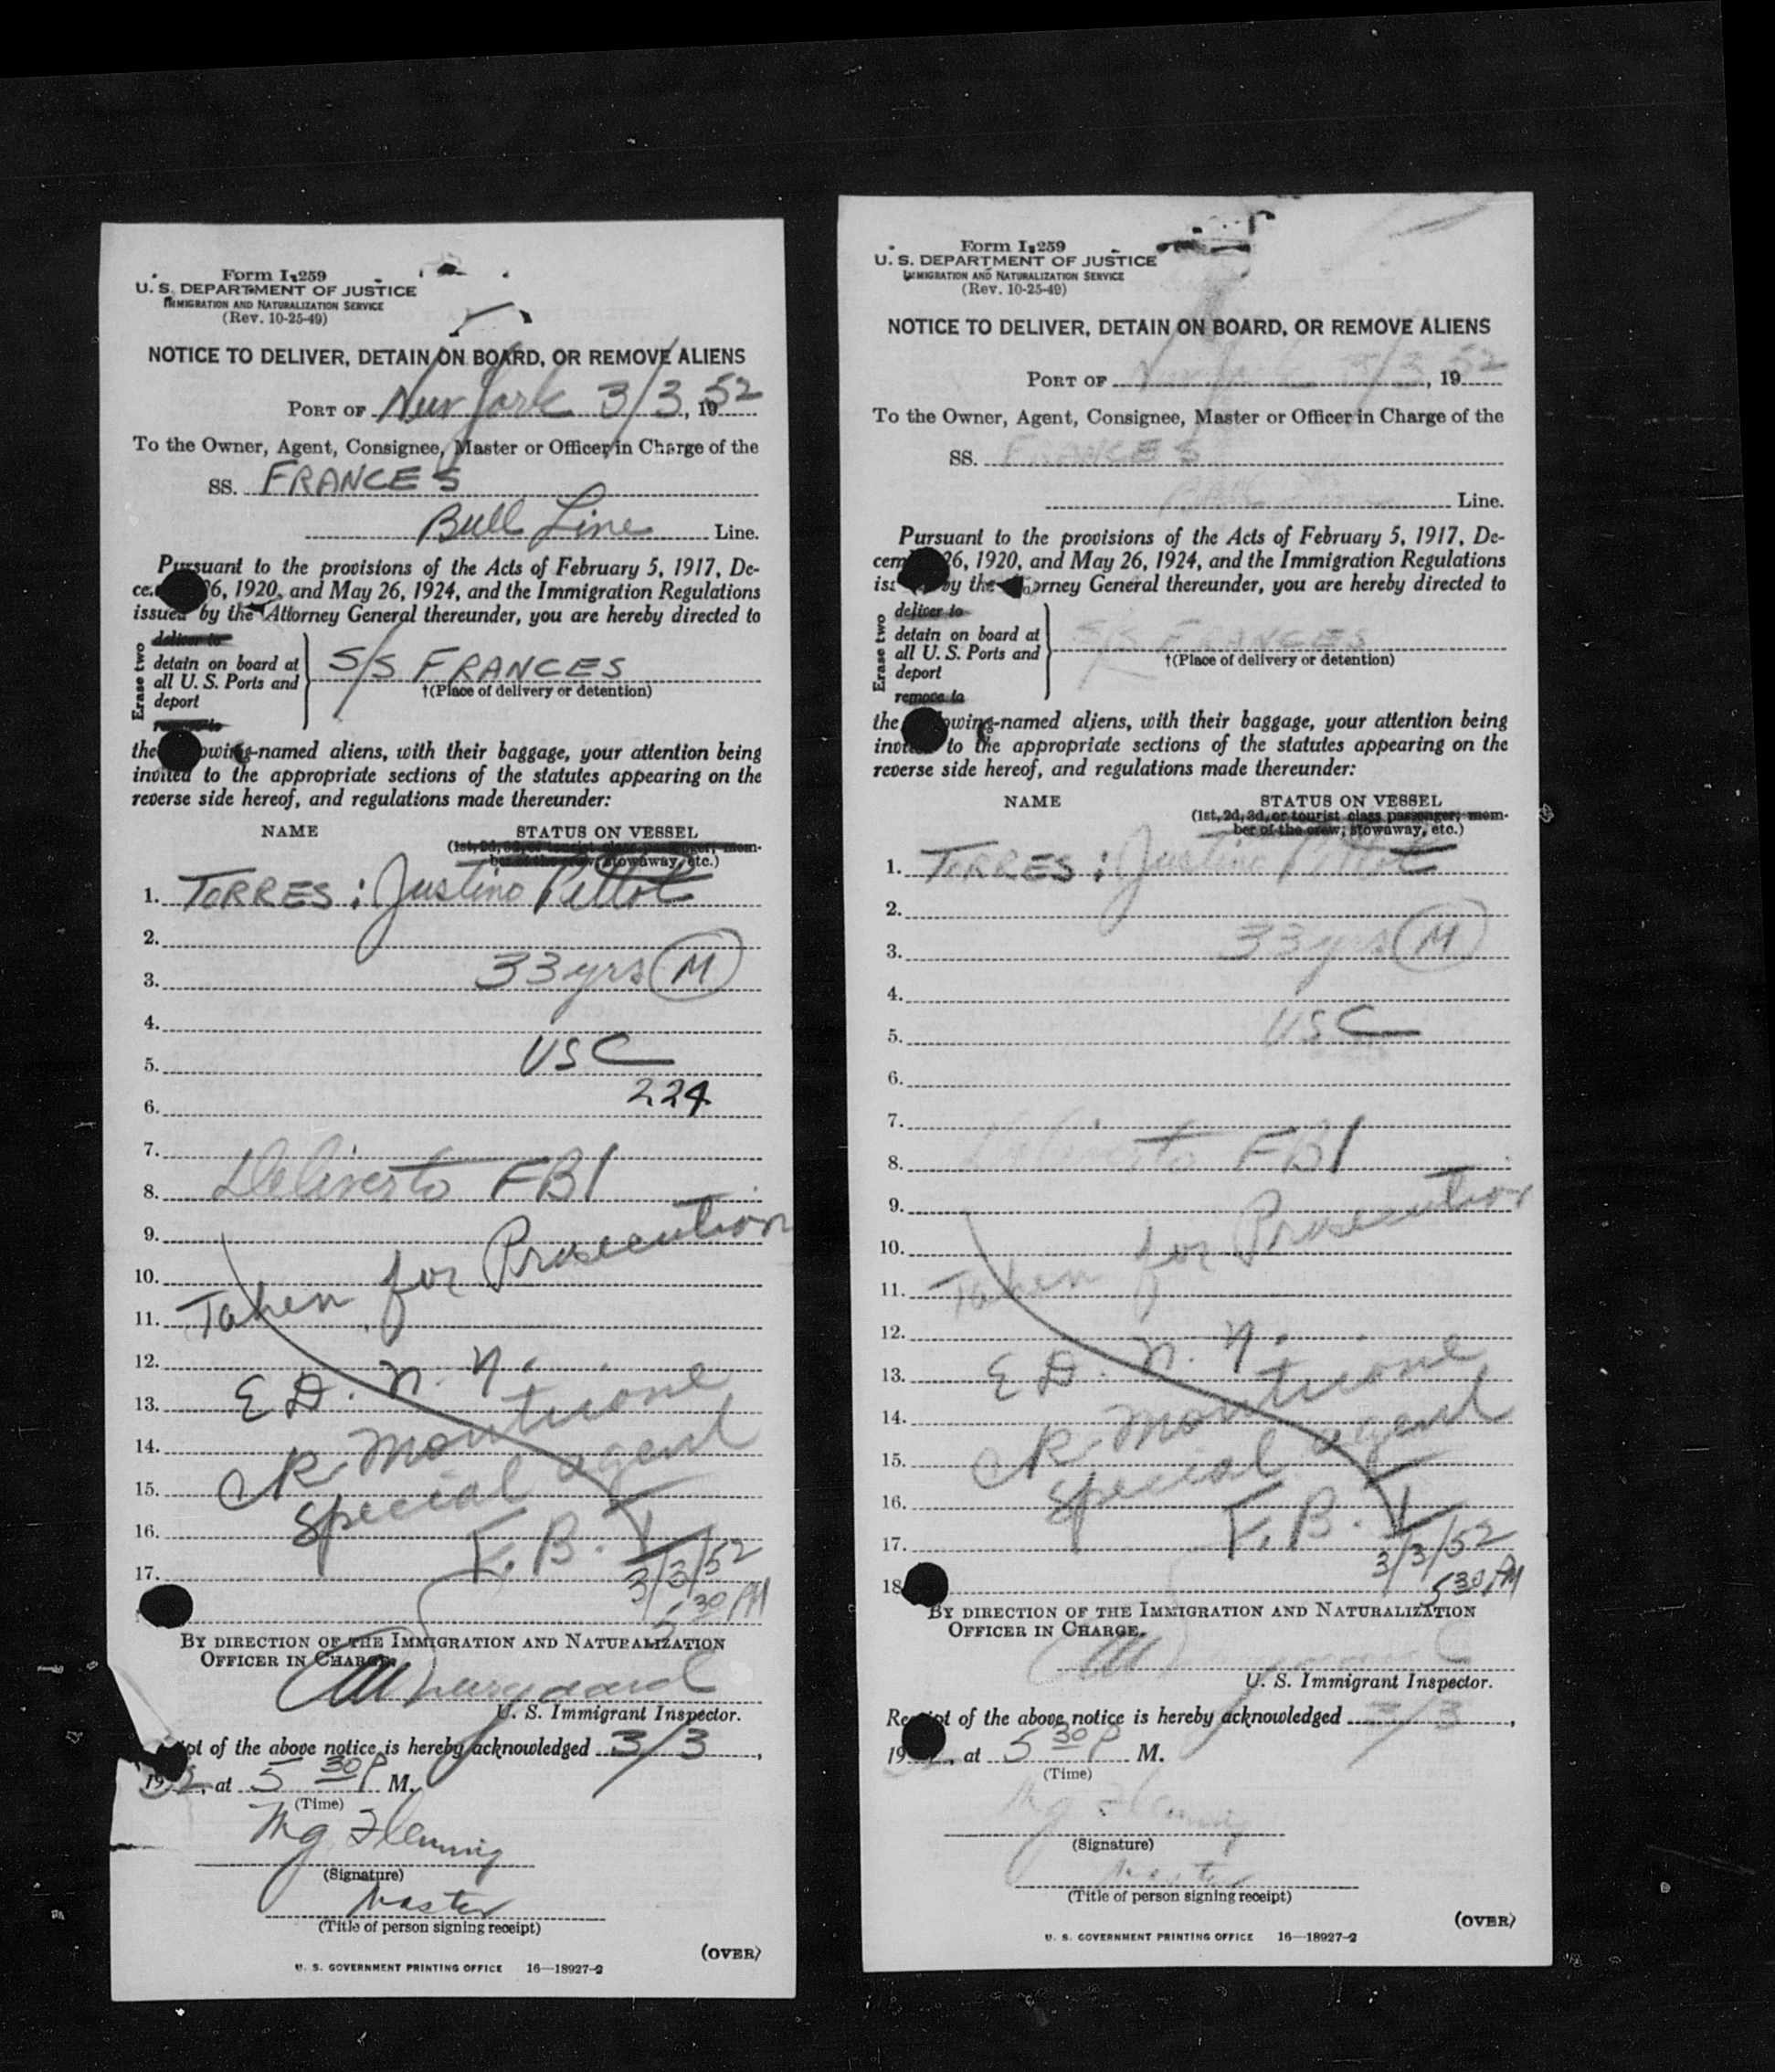 Form I-259
U. S. DEPARTMENT OF JUSTICE
IMMIGRATION AND NATURALIZATION SERVICE
(Rev. 10-25-49)
NOTICE TO DELIVER, DETAIN ON BOARD, OR REMOVE ALIENS
PORT OF New York 3/3, 1952
To the Owner, Agent, Consignee, Master or Officer in Charge of the
SS. FRANCES
Bull Line Line.
Pursuant to the provisions of the Acts of February 5, 1917, De-
ce 6, 1920, and May 26, 1924, and the Immigration Regulations
issued by the Attorney General thereunder, you are hereby directed to
Erase two
deliver to
detain on board at
all U. S. Ports and
deport
remove to
S/S FRANCES
†(Place of delivery or detention)
the owing-named aliens, with their baggage, your attention being
invited to the appropriate sections of the statutes appearing on the
reverse side hereof, and regulations made thereunder:
NAME STATUS ON VESSEL
(1st, 2d, 3d, or tourist class passenger; mem-
ber of the crew; stowaway, etc.)
1. TORRES: Justino Pellot
2.
3. 33 yrs M
4.
5. USC
6. 224
7.
8. Deliver to FBI
9.
10. Taken for Prosecution
11.
12.
13. E D. N. Y.
14.
15. Special agent
16.
17. F. B. I
3/3/52
5 30 PM
BY DIRECTION OF THE IMMIGRATION AND NATURALIZATION
OFFICER IN CHARGE.
U. S. Immigrant Inspector.
pt of the above notice is hereby acknowledged 3/3,
1952, at 5 30 P M.
(Time)
Mg Fleming
(Signature)
Master
(Title of person signing receipt)
(OVER)
U. S. GOVERNMENT PRINTING OFFICE 16—18927-2
Form I-259
U. S. DEPARTMENT OF JUSTICE
IMMIGRATION AND NATURALIZATION SERVICE
(Rev. 10-25-49)
NOTICE TO DELIVER, DETAIN ON BOARD, OR REMOVE ALIENS
PORT OF New York 3/3, 1952
To the Owner, Agent, Consignee, Master or Officer in Charge of the
SS. FRANCES
Bull Line Line.
Pursuant to the provisions of the Acts of February 5, 1917, De-
cem 26, 1920, and May 26, 1924, and the Immigration Regulations
iss by the Attorney General thereunder, you are hereby directed to
Erase two
deliver to
detain on board at
all U. S. Ports and
deport
remove to
S/S FRANCES
†(Place of delivery or detention)
the owing-named aliens, with their baggage, your attention being
invited to the appropriate sections of the statutes appearing on the
reverse side hereof, and regulations made thereunder:
NAME STATUS ON VESSEL
(1st, 2d, 3d, or tourist class passenger; mem-
ber of the crew; stowaway, etc.)
1. TORRES: Justino Pellot
2.
3. 33 yrs M
4.
5. USC
6.
7.
8. Deliver to FBI
9.
10. Taken for Prosecution
11.
12.
13. E D. N. Y.
14.
15. Special agent
16.
17. F. B. I
3/3/52
18 5 30 PM
BY DIRECTION OF THE IMMIGRATION AND NATURALIZATION
OFFICER IN CHARGE.
U. S. Immigrant Inspector.
Receipt of the above notice is hereby acknowledged 3/3,
1952, at 5 30 P M.
(Time)
Mg Fleming
(Signature)
Master
(Title of person signing receipt)
(OVER)
U. S. GOVERNMENT PRINTING OFFICE 16—18927-2